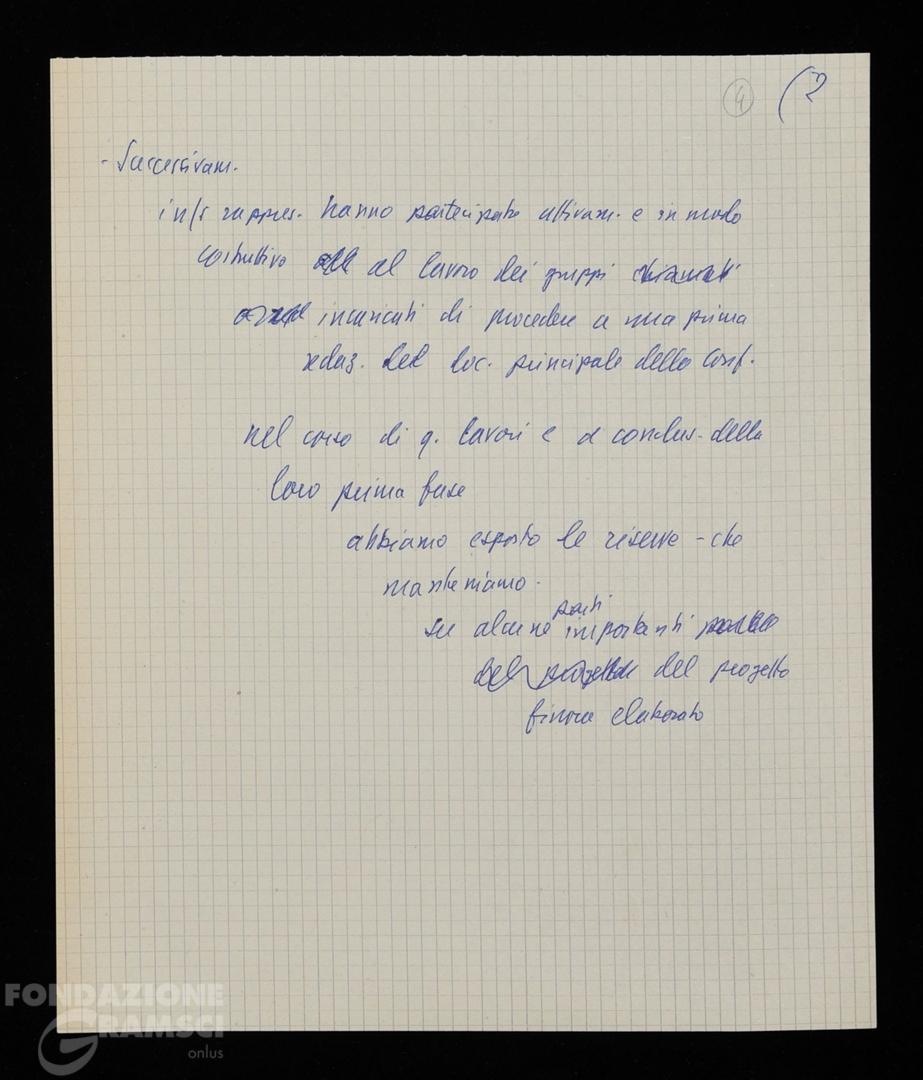 4 (2
- Successivam.
i n/s rappres. hanno partecipato attivam. e in modo
costruttivo al lavoro dei gruppi chiamati
incaricati di procedere a una prima
redaz. del doc. principale della Conf.
nel corso di q. lavori e a conclus. della
loro prima fase
abbiamo esposto le riserve - che
manteniamo -
su alcune parti importanti
del progetto del progetto
finora elaborato
FONDAZIONE
GRAMSCI
onlus